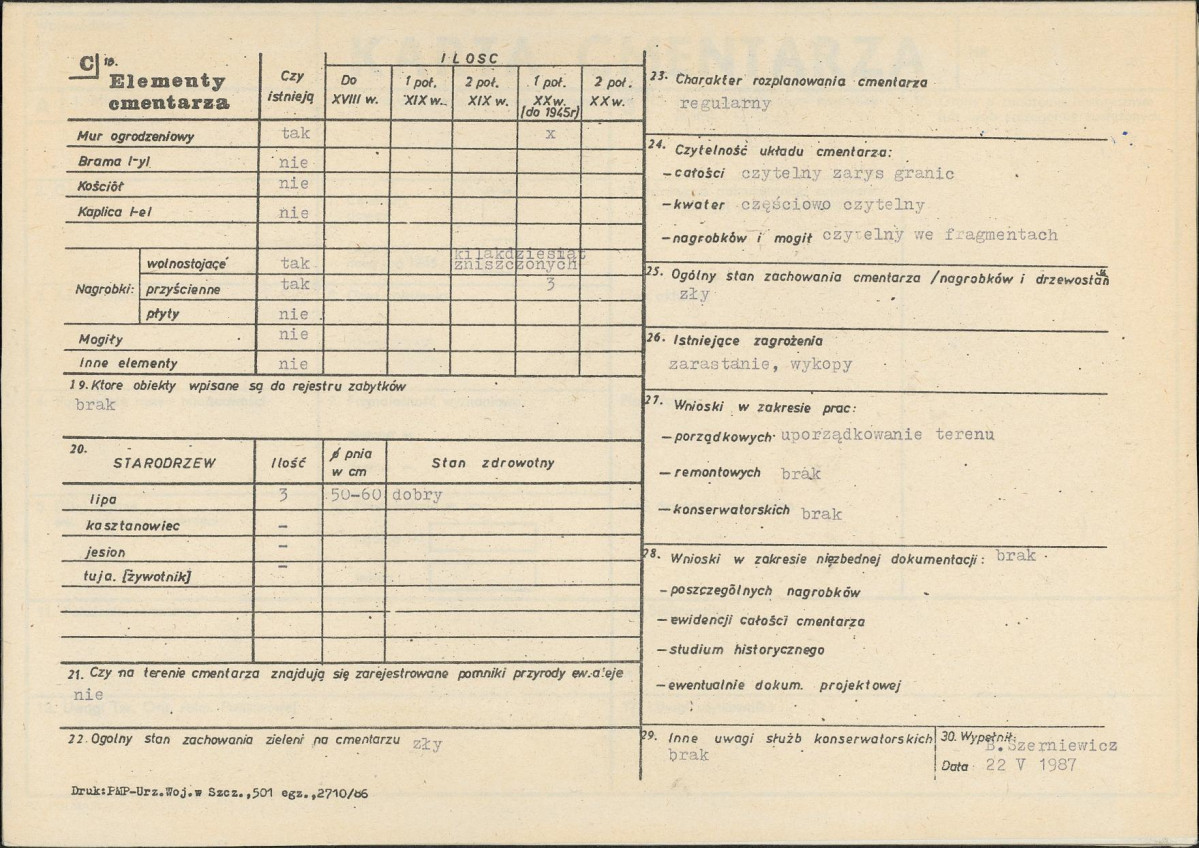 C 18.
Elementy
cmentarza
Czy
istnieją
ILOSC
Do
XVIII w.
1 poł.
XIX w.
2 poł.
XIX w.
1 poł.
XX w.
(do 1945r)
2 poł.
XX w.
Mur ogrodzeniowy tak x
Brama /-y/ nie
Kościół nie
Kaplica /-e/ nie
kilakdziesiąt
wolnostojące tak zniszczonych
Nagrobki: przyścienne tak 3
płyty nie
Mogiły nie
Inne elementy nie
19. Ktore obiekty wpisane są do rejestru zabytków
brak
20.
STARODRZEW Ilość ø pnia
w cm Stan zdrowotny
lipa 3 50-60 dobry
kasztanowiec –
jesion –
tuja. [żywotnik] –
21. Czy na terenie cmentarza znajdują się zarejestrowane pomniki przyrody ew. aleje
nie
22. Ogolny stan zachowania zieleni na cmentarzu zły
Druk:PMP-Urz.Woj.w Szcz.,501 egz.,2710/86
23. Charakter rozplanowania cmentarza
regularny
24. Czytelność układu cmentarza:
– całości czytelny zarys granic
– kwater częściowo czytelny
– nagrobków i mogił czytelny we fragmentach
25. Ogólny stan zachowania cmentarza /nagrobków i drzewostan
zły
26. Istniejące zagrożenia
zarastanie, wykopy
27. Wnioski w zakresie prac:
– porządkowych uporządkowanie terenu
– remontowych brak
– konserwatorskich brak
28. Wnioski w zakresie niezbednej dokumentacji: brak
– poszczególnych nagrobków
– ewidencji całości cmentarza
– studium historycznego
– ewentualnie dokum. projektowej
29. Inne uwagi służb konserwatorskich
brak
30. Wypełnił:
B.Szerniewicz
Data 22 V 1987